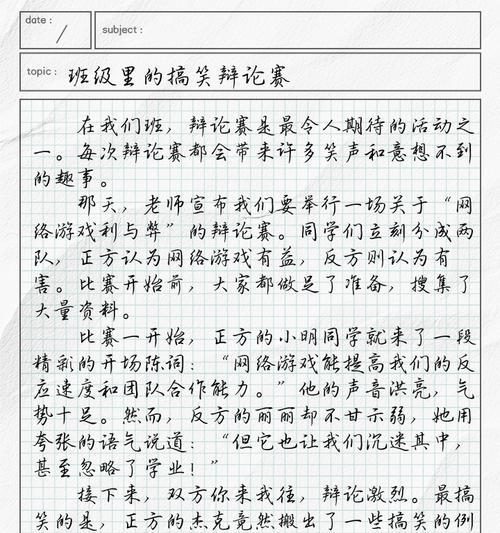 date :
subject :
topic : 班级里的搞笑辩论赛
在我们班，辩论赛是最令人期待的活动之
一。每次辩论赛都会带来许多笑声和意想不到
的趣事。
那天，老师宣布我们要举行一场关于“网
络游戏利与弊”的辩论赛。同学们立刻分成两
队，正方认为网络游戏有益，反方则认为有
害。比赛开始前，大家都做足了准备，搜集了
大量资料。
比赛一开始，正方的小明同学就来了一段
精彩的开场陈词：“网络游戏能提高我们的反
应速度和团队合作能力。”他的声音洪亮，气
势十足。然而，反方的丽丽却不甘示弱，她用
夸张的语气说道：“但它也让我们沉迷其中，
甚至忽略了学业！”
接下来，双方你来我往，辩论激烈。最搞
笑的是，正方的杰克竟然搬出了一些搞笑的例